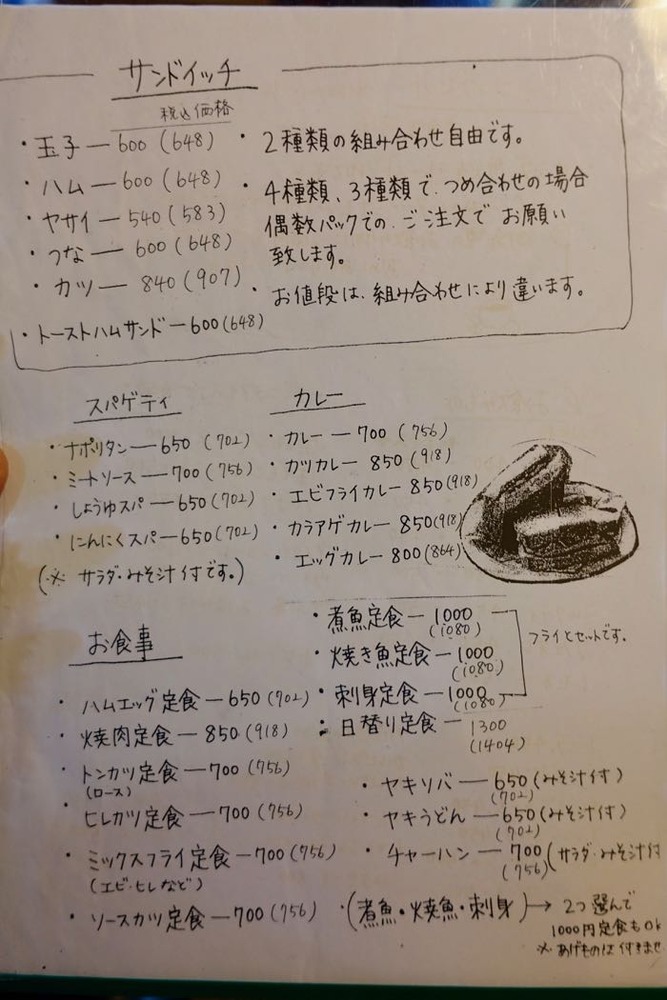 サンドイッチ
税込価格
・玉子—600(648)
・ハム—600(648)
・ヤサイ—540(583)
・つな—600(648)
・カツ—840(907)
・トーストハムサンド—600(648)
・2種類の組み合わせ自由です。
・4種類、3種類で、つめ合わせの場合
偶数パックでの、ご注文でお願い
致します。
・お値段は、組み合わせにより違います。
スパゲティ
・ナポリタン—650(702)
・ミートソース—700(756)
・しょうゆスパ—650(702)
・にんにくスパ—650(702)
(※サラダ・みそ汁付です。)
カレー
・カレー—700(756)
・カツカレー 850(918)
・エビフライカレー 850(918)
・カラアゲカレー 850(918)
・エッグカレー 800(864)
お食事
・ハムエッグ定食—650(702)
・焼肉定食—850(918)
・トンカツ定食—700(756)
(ロース)
・ヒレカツ定食—700(756)
・ミックスフライ定食—700(756)
(エビ・ヒレなど)
・ソースカツ定食—700(756)
・煮魚定食—1000
(1080)
・焼き魚定食—1000
(1080)
・刺身定食—1000
(1080)
フライとセットです。
・日替り定食—1300
(1404)
・ヤキソバ—650(みそ汁付)
(702)
・ヤキうどん—650(みそ汁付)
(702)
・チャーハン—700(サラダ・みそ汁付
(756)
・(煮魚・焼魚・刺身)→2つ選んで
1000円定食もOk
※あげものは付きませ